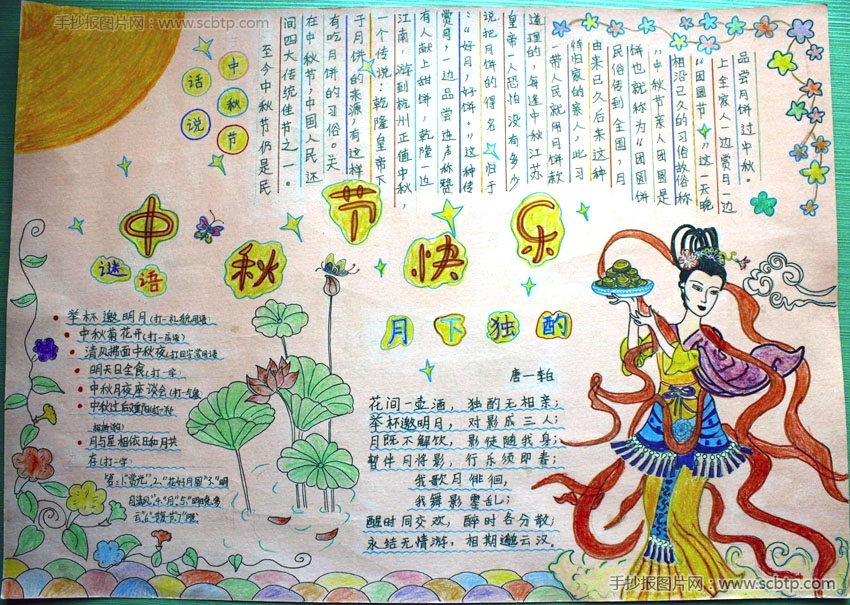 手抄报图片网:www.scbtp.com
中秋节
话说
至今中秋节仍是民
间四大传统佳节之一。
在中秋节,中国人民还
有吃月饼的习俗。关
于月饼的来源,有这样
一个传说:乾隆皇帝下
江南,游到杭州正值中秋,
有人献上甜饼,乾隆一边
赏月,一边品尝连声称赞
:“好月,好饼。”这种传
说把月饼的得名,归于
皇帝一人恐怕没有多少
道理的,每逢中秋江苏
一带人民就用月饼款
待归家的亲人,此习
由来已久后来这种
民俗传到全国,月
饼也就称为“团圆饼
”中秋节亲人团圆是
相沿已久的习俗故俗称
“团圆节”。这一天晚
上全家人一边赏月一边
品尝月饼过中秋。
中秋节快乐
谜语
举杯邀明月(打一礼貌用语
中秋菊花开(打一成语)
清风拂面中秋夜(打四字常用语
明天日全食(打一字)
中秋月夜座谈会(打一
中秋过后
月与星相依日和月共
在(打一字)
月下独酌
唐-李白
花间一壶酒,独酌无相亲;
举杯邀明月,对影成三人;
月既不解饮,影徒随我身;
暂伴月将影,行乐须即春;
我歌月徘徊,
我舞影零乱;
醒时同交欢,醉时各分散;
永结无情游,相期邈云汉。
手抄报图片网:www.scbtp.com